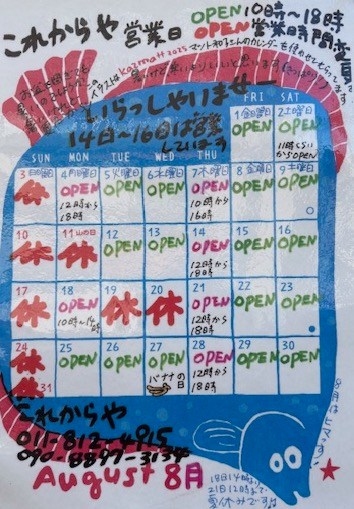 これからや 営業日 OPEN 10時〜18時
OPEN 営業時間変更
kazmatt 2025
いらっしゃいませー
14日〜16日は営業
しています
FRI SAT
1 金曜日 2 土曜日
OPEN OPEN
11時くらい
からOPEN
SUN MON TUE WED THU
3 日曜日 4 月曜日 5 火曜日 6 水曜日 7 木曜日 8 金曜日 9 土曜日
休 OPEN OPEN OPEN OPEN OPEN OPEN
12時から 18時 10時から 16時
10 11 山の日 12 13 14 15 16
休 休 OPEN OPEN OPEN OPEN OPEN
12時から 18時
17 18 19 20 21 22 23
休 OPEN 休 休 OPEN OPEN OPEN
10時〜14時 12時から 18時
24 25 26 27 28 29 30
休 OPEN OPEN OPEN OPEN OPEN OPEN
休 31 バナナの日 12時から 18時
これからや
011-812-4815
090-8897-3134
August 8月
18日14時より
21日12時まで
夏休みです